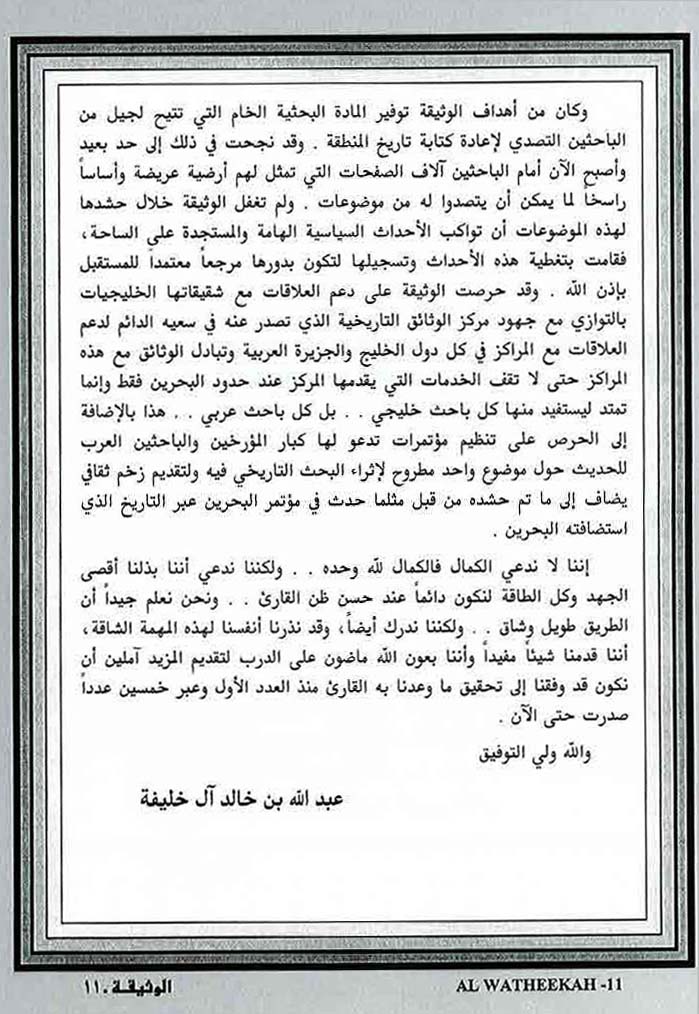 وكان من أهداف الوثيقة توفير المادة البحثية الخام التي تتيح لجيل من
الباحثين التصدي لإعادة كتابة تاريخ المنطقة . وقد نجحت في ذلك إلى حد بعيد
وأصبح الآن أمام الباحثين آلاف الصفحات التي تمثل لهم أرضية عريضة وأساساً
راسخاً لما يمكن أن يتصدوا له من موضوعات . ولم تغفل الوثيقة خلال حشدها
لهذه الموضوعات أن تواكب الأحداث السياسية الهامة والمستجدة على الساحة،
فقامت بتغطية هذه الأحداث وتسجيلها لتكون بدورها مرجعاً معتمداً للمستقبل
بإذن الله . وقد حرصت الوثيقة على دعم العلاقات مع شقيقاتها الخليجيات
بالتوازي مع جهود مركز الوثائق التاريخية الذي تصدر عنه في سعيه الدائم لدعم
العلاقات مع المراكز في كل دول الخليج والجزيرة العربية وتبادل الوثائق مع هذه
المراكز حتى لا تقف الخدمات التي يقدمها المركز عند حدود البحرين فقط وإنما
تمتد ليستفيد منها كل باحث خليجي . . بل كل باحث عربي . . هذا بالإضافة
إلى الحرص على تنظيم مؤتمرات تدعو لها كبار المؤرخين والباحثين العرب
للحديث حول موضوع واحد مطروح لإثراء البحث التاريخي فيه ولتقديم زخم ثقافي
يضاف إلى ما تم حشده من قبل مثلما حدث في مؤتمر البحرين عبر التاريخ الذي
استضافته البحرين .
إننا لا ندعي الكمال فالكمال لله وحده . . ولكننا ندعي أننا بذلنا أقصى
الجهد وكل الطاقة لنكون دائماً عند حسن ظن القارئ . . ونحن نعلم جيداً أن
الطريق طويل وشاق . . ولكننا ندرك أيضاً، وقد نذرنا أنفسنا لهذه المهمة الشاقة،
أننا قدمنا شيئاً مفيداً وأننا بعون الله ماضون على الدرب لتقديم المزيد آملين أن
نكون قد وفقنا إلى تحقيق ما وعدنا به القارئ منذ العدد الأول وعبر خمسين عدداً
صدرت حتى الآن .
والله ولي التوفيق
عبد الله بن خالد آل خليفة
الوثيقـة . ١١
AL WATHEEKAH -11